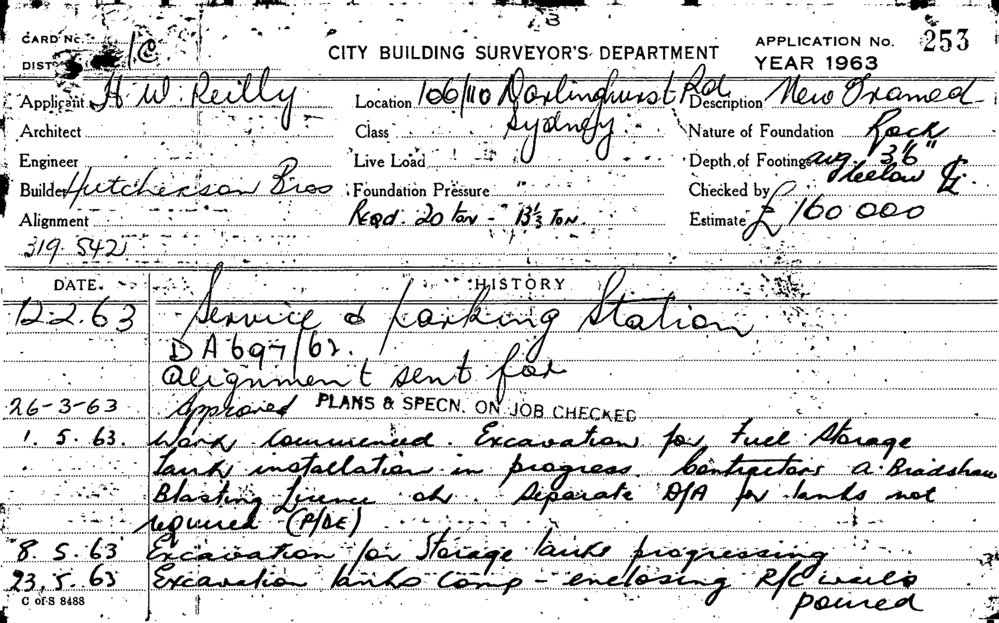 CARD No.
DIST.
CITY BUILDING SURVEYOR'S DEPARTMENT
APPLICATION No. 253
YEAR 1963
Applicant H W. Reilly
Location 106/110 Darlinghurst Rd
Sydney
Description New Framed
Architect
Class
Nature of Foundation Rock
Engineer
Live Load
Depth of Footings avg. 3'6"
below
Builder Hutcherson Bros
Foundation Pressure "
Checked by
Alignment
Reqd. 20 ton - 13⅓ Ton.
Estimate £160 000
319.542
DATE.
HISTORY
12-2-63 Service & Parking Station
D A 697/62.
Alignment sent for
26-3-63 Approved PLANS & SPECN. ON JOB CHECKED
1. 5. 63. Work Commenced. Excavation for Fuel Storage
tank installation in progress. Contractors A. Bradshaw
Blasting Licence ok. Separate D/A for tanks not
required (P/DE)
8. 5. 63 Excavation for Storage tanks progressing
23. 5. 63 Excavation tanks Comp - enclosing R/C walls
poured
C of S 8488